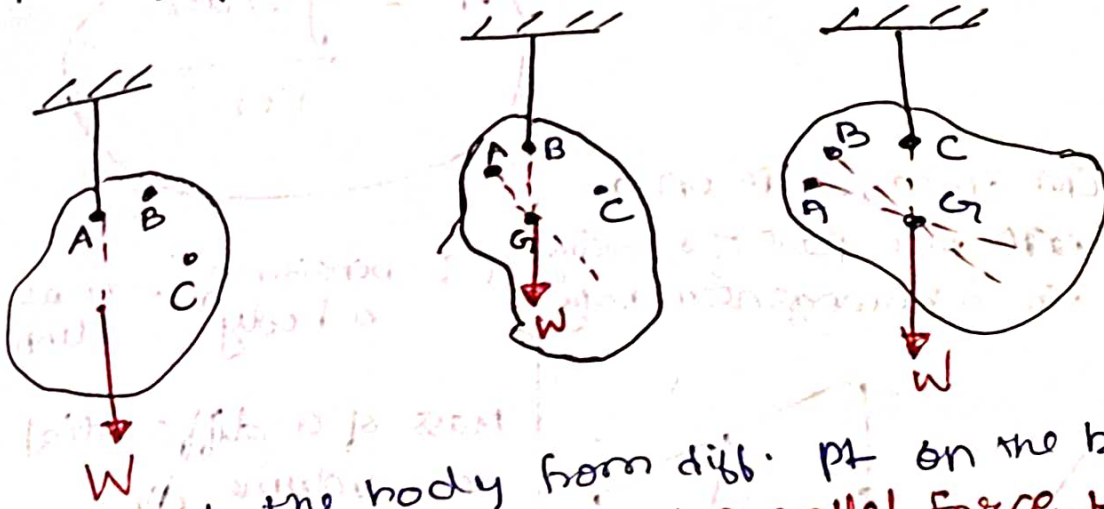 A
B
C
W
A
B
G
C
W
B
C
A
G
W
the body from diff. pt on the
force